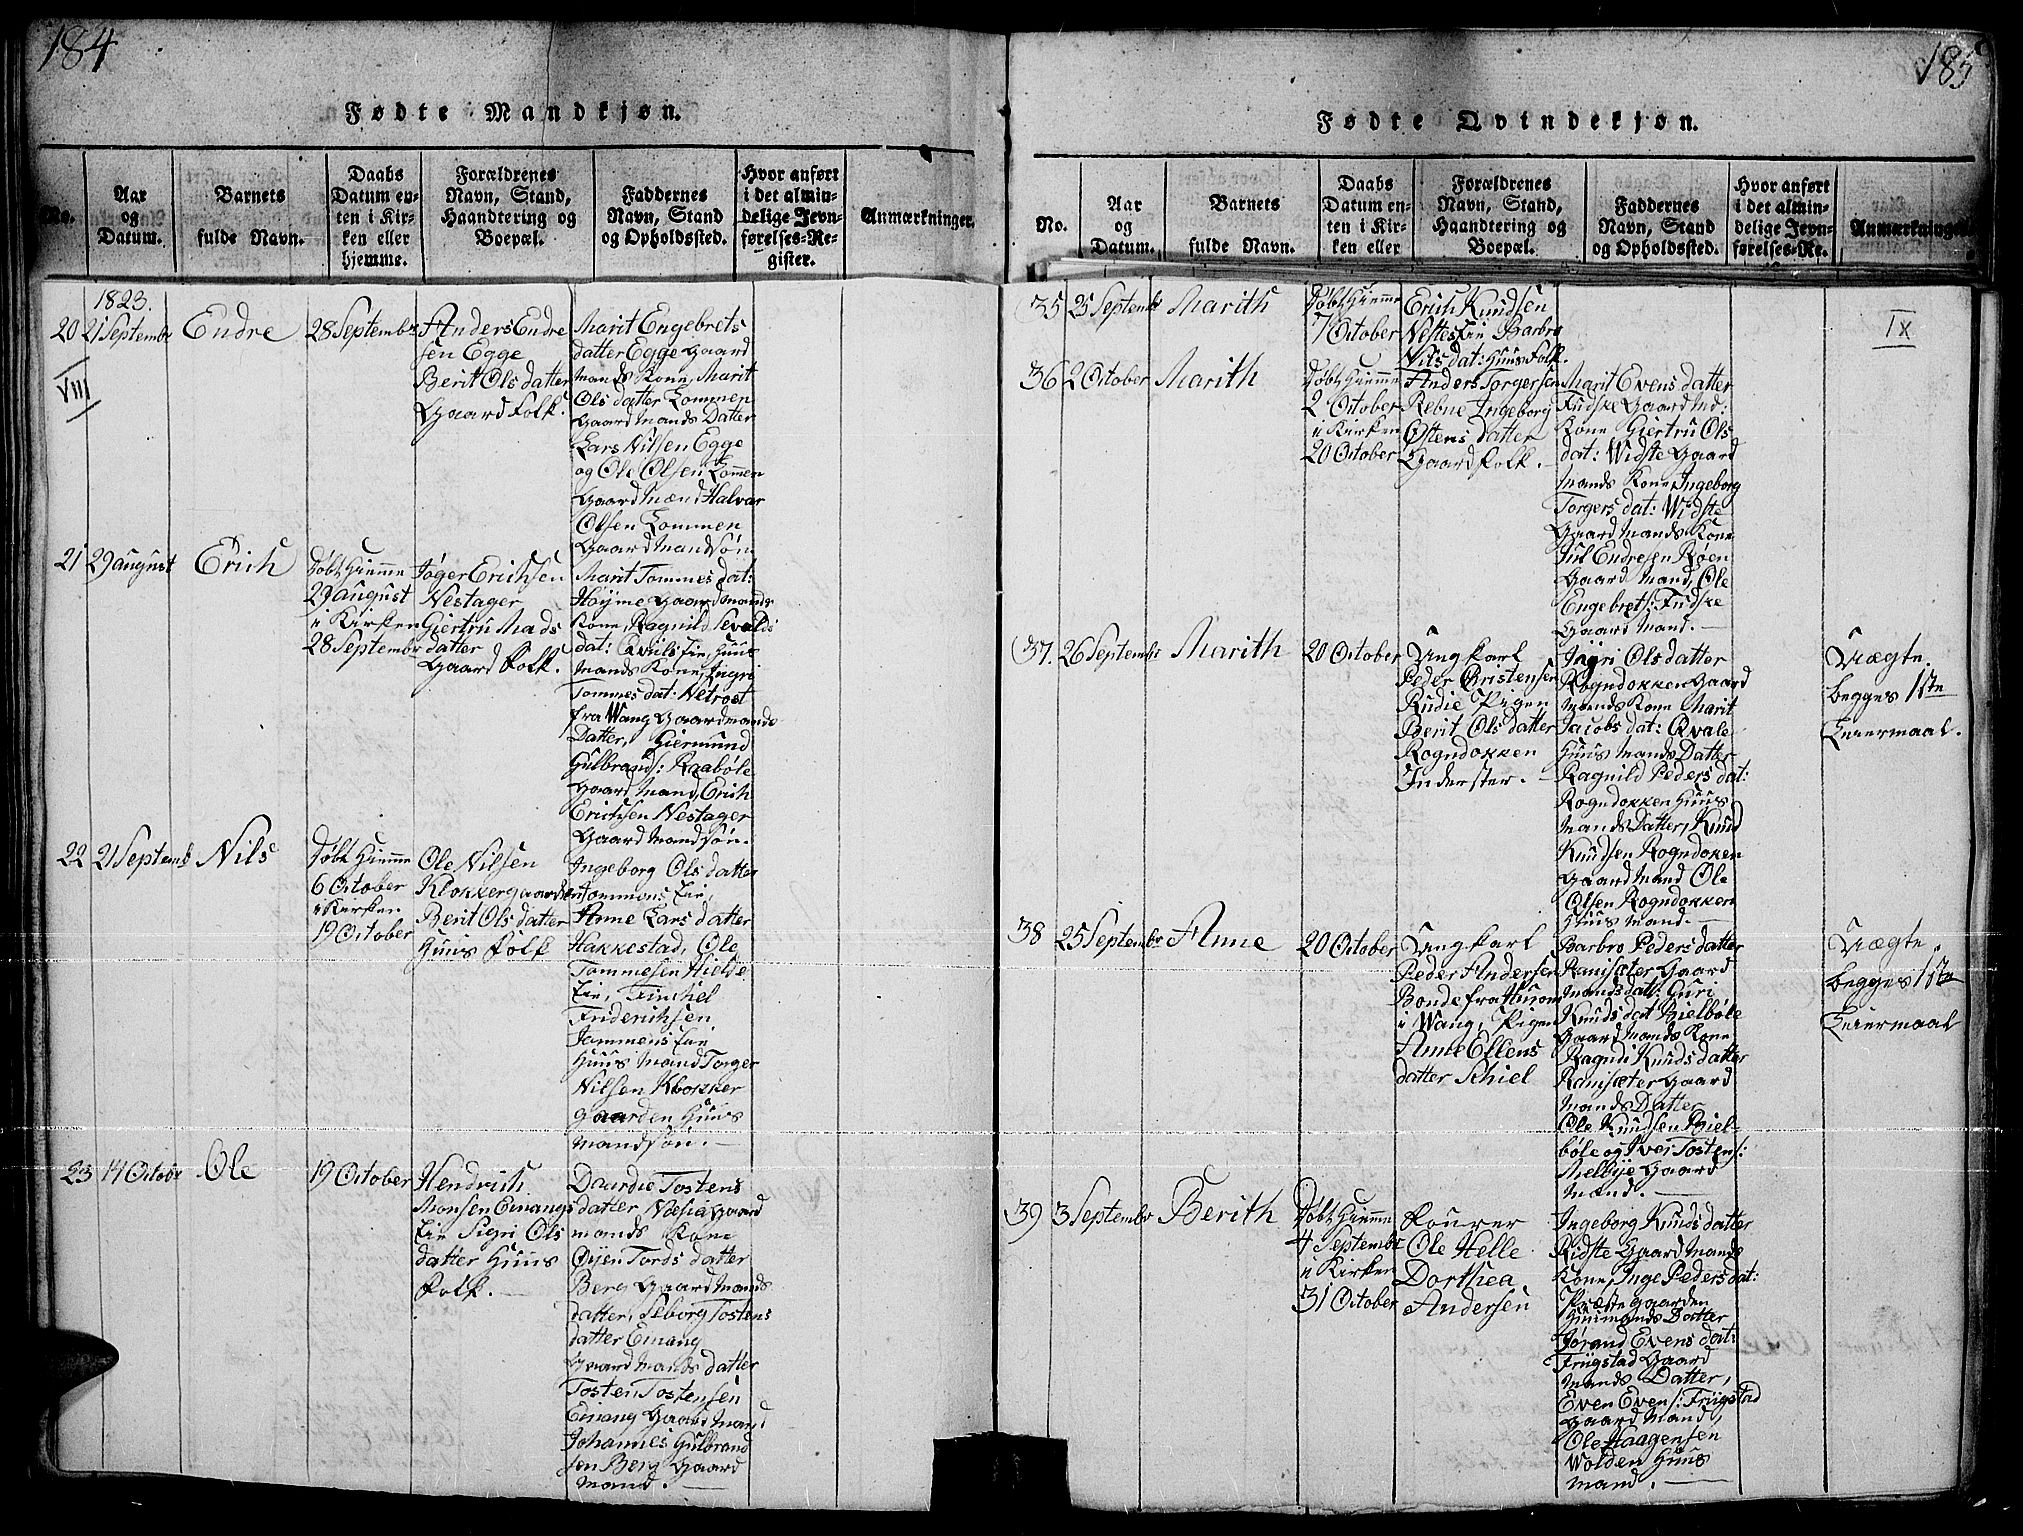 184
Fødte Mandkjøn.
No.
Aar
og
Datum.
Barnets
fulde Navn.
Daabs
Datum en-
ten i Kir-
ken eller
hjemme.
Forældrenes
Navn, Stand,
Haandtering og
Boepæl.
Faddernes
Navn, Stand
og Opholdssted.
Hvor anført
i det almin-
delige Jevn-
førelses-Re-
gister.
Anmærkninger.
1823.
20
21 Septembr
Endre
28 Septembr
Anders Endre
sen Egge
Berit Ols datter
Gaard Folk.
Marit Engebrets
datter Egge Gaard
mands Kone, Marit
Ols datter Lommen
Gaard Mands Datter
Lars Nilsen Egge
og Ole Olsen Lomen
Gaard Mænd Halvar
Olsen Lommen
Gaard Mandsøn
VIII
21
29 august
Erich
Døbt Hiemme
29 august
i Kirken
28 Septembr
Jøger Erichsen
Nestager
Giertru Mads
datter
Gaard Folk.
Marit Tommes dat:
Høyme Gaard mands
Kone, Ragnild Sevalds
dat: Qvals Eie, Huus
mands Kone, Ingri
Tommes dat: Nefrost
fra Wang Gaardmands
Datter, Giermund
Gulbrands: Raabøle
Gaard Mand, Erich
Erichsen Nestager
Gaard Mandsøn.
22
21 Septemb
Nils
Døbt Hiemme
6 October
i Kirken
19 October
Ole Nilsen
Klokkergaarden
Berit Ols datter
Huus Folk
Ingeborg Ols datter
Jommens Eie,
Anne Lars datter
Hakkestad, Ole
Tommesen Hielde
Eie, Finchel
Friderichsen
Jommens Eie
Huus Mand Torger
Nilsen Klokker
gaarden Huus
mandsøn.
23
14 Octobr
Ole
19 October
Hendrich
Monsen Einangs
Eie Sigri Ols
datter Huus
Folk.
Daardie Tostens
datter Næsia Gaard
mands Kone
Øijen Tords datter
Berg Gaard Mands
datter, Seborg Tostens
datter Einang
Gaard Mands datter
Tosten Tostensen
Einang Gaard Mand
Johannes Gulbrand
sen Berg Gaard
Mand.
185
Fødte Qvindekjøn.
No.
Aar
og
Datum.
Barnets
fulde Navn.
Daabs
Datum en-
ten i Kir-
ken eller
Forældrenes
Navn, Stand,
Haandtering og
Boepæl.
Faddernes
Navn, Stand
og Opholdssted.
Hvor anført
i det almin-
delige Jevn-
førelses-Re-
Anmærkninger.
35
25 Septemb
Marith
Døbt Hiemme
7 October
Erich Knudsen
Nestes Eie Barbro
Nils dat: Huus Folk.
IX
36
2 October
Marith
Døbt Hiemme
2 October
i Kirken
20 October
Anders Torgersen
Rebne Ingeborg
Østens datter
Gaard Folk.
Marit Evens datter
Fudske Gaard Md:
Kone Giertru Ols
dat: Widste Gaard
Mands Kone, Ingeborg
Torgers dat: Widste
Gaard Mands Kone
Jul Endresen Røen
Gaard Mand, Ole
Engebrets: Fudske
Gaard Mand.
37.
26 Septembr
Marith
20 October
Ung karl
Peder Christensen
Rudie Pigen
Berit Ols datter
Rogndokken
Inderster.
Ingri Ols datter
Rogndokken Gaard
Mands Kone Marit
Jacobs dat: Qvale
Huus Mands Datter
Ragnild Peders dat:
Rogndokken Huus
Mands Datter, Knud
Knudsen Rogndoken
Gaard Mand Ole
Olsen Rogndokken
Huus Mand.
Uægte.
begges 1ste
Leiermaal.
38
25 Septembr
Anne
20 October
Ung karl
Peder Andersen
Bonde fra Hurom
i Wang, Pigen
Anne Ellens
datter Schiel
Barbro Peders datter
Ranisæter Gaard
Mands datt: Guri
Knuds dat Bielbøle
Gaard Mands Kone
Ragndi Knuds datter
Ranisæter Gaard
Mands Datter
Ole Knudsen Biel-
bøle og Iver Tostens:
Melbye Gaard
Mænd.
Uægte.
begges 1ste
Leiermaal
39
3 Septembr
Berith
Døbt Hiemme
4 Septembr
i Kirken
31 October
Fourer
Ole Helle
Dorthea
Andersen
Ingeborg Knuds datter
Ridste Gaard Mands
Kone, Inge Peders dat:
Præstegaarden
Huusmands Datter
Jørand Evens dat:
Frügstad Gaard
Mands Datter,
Even Evens: Frügstad
Gaard Mand,
Ole Haagensen
Wolden Huus
Mand.